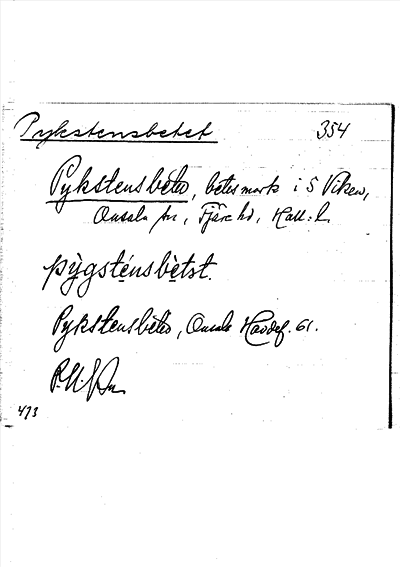 Pykstensbetet 354
Pykstensbetet, betesmark i S Viken,
Onsala sn, Fjäre hd, Hall. l.
pỳgsténsbètst.
Pykstensbetet, Onsala Havdef. 61.
473